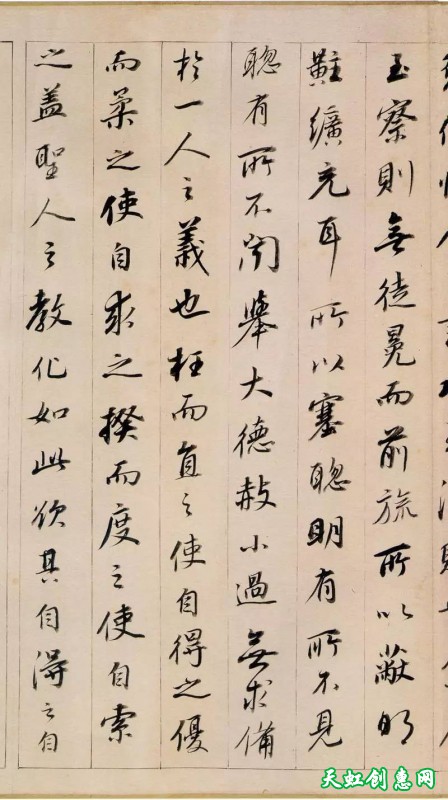 至察則無徒冕而前旒所以蔽明
黈纊充耳所以塞聰明有所不見
聰有所不聞舉大德赦小過無求備
於一人之義也枉而直之使自得之優
而柔之使自求之揆而度之使自索
之盖聖人之教化如此欲其自得之自
天虹创惠网